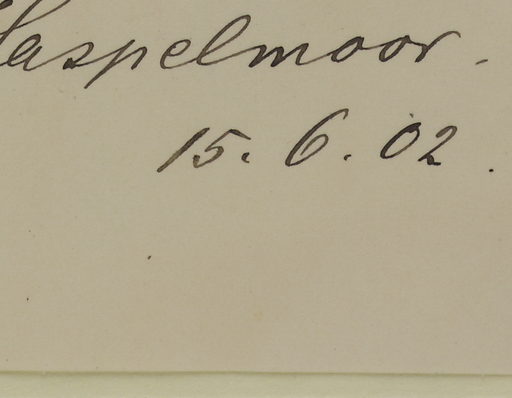 Haspelmoor.
15. 6. 02.